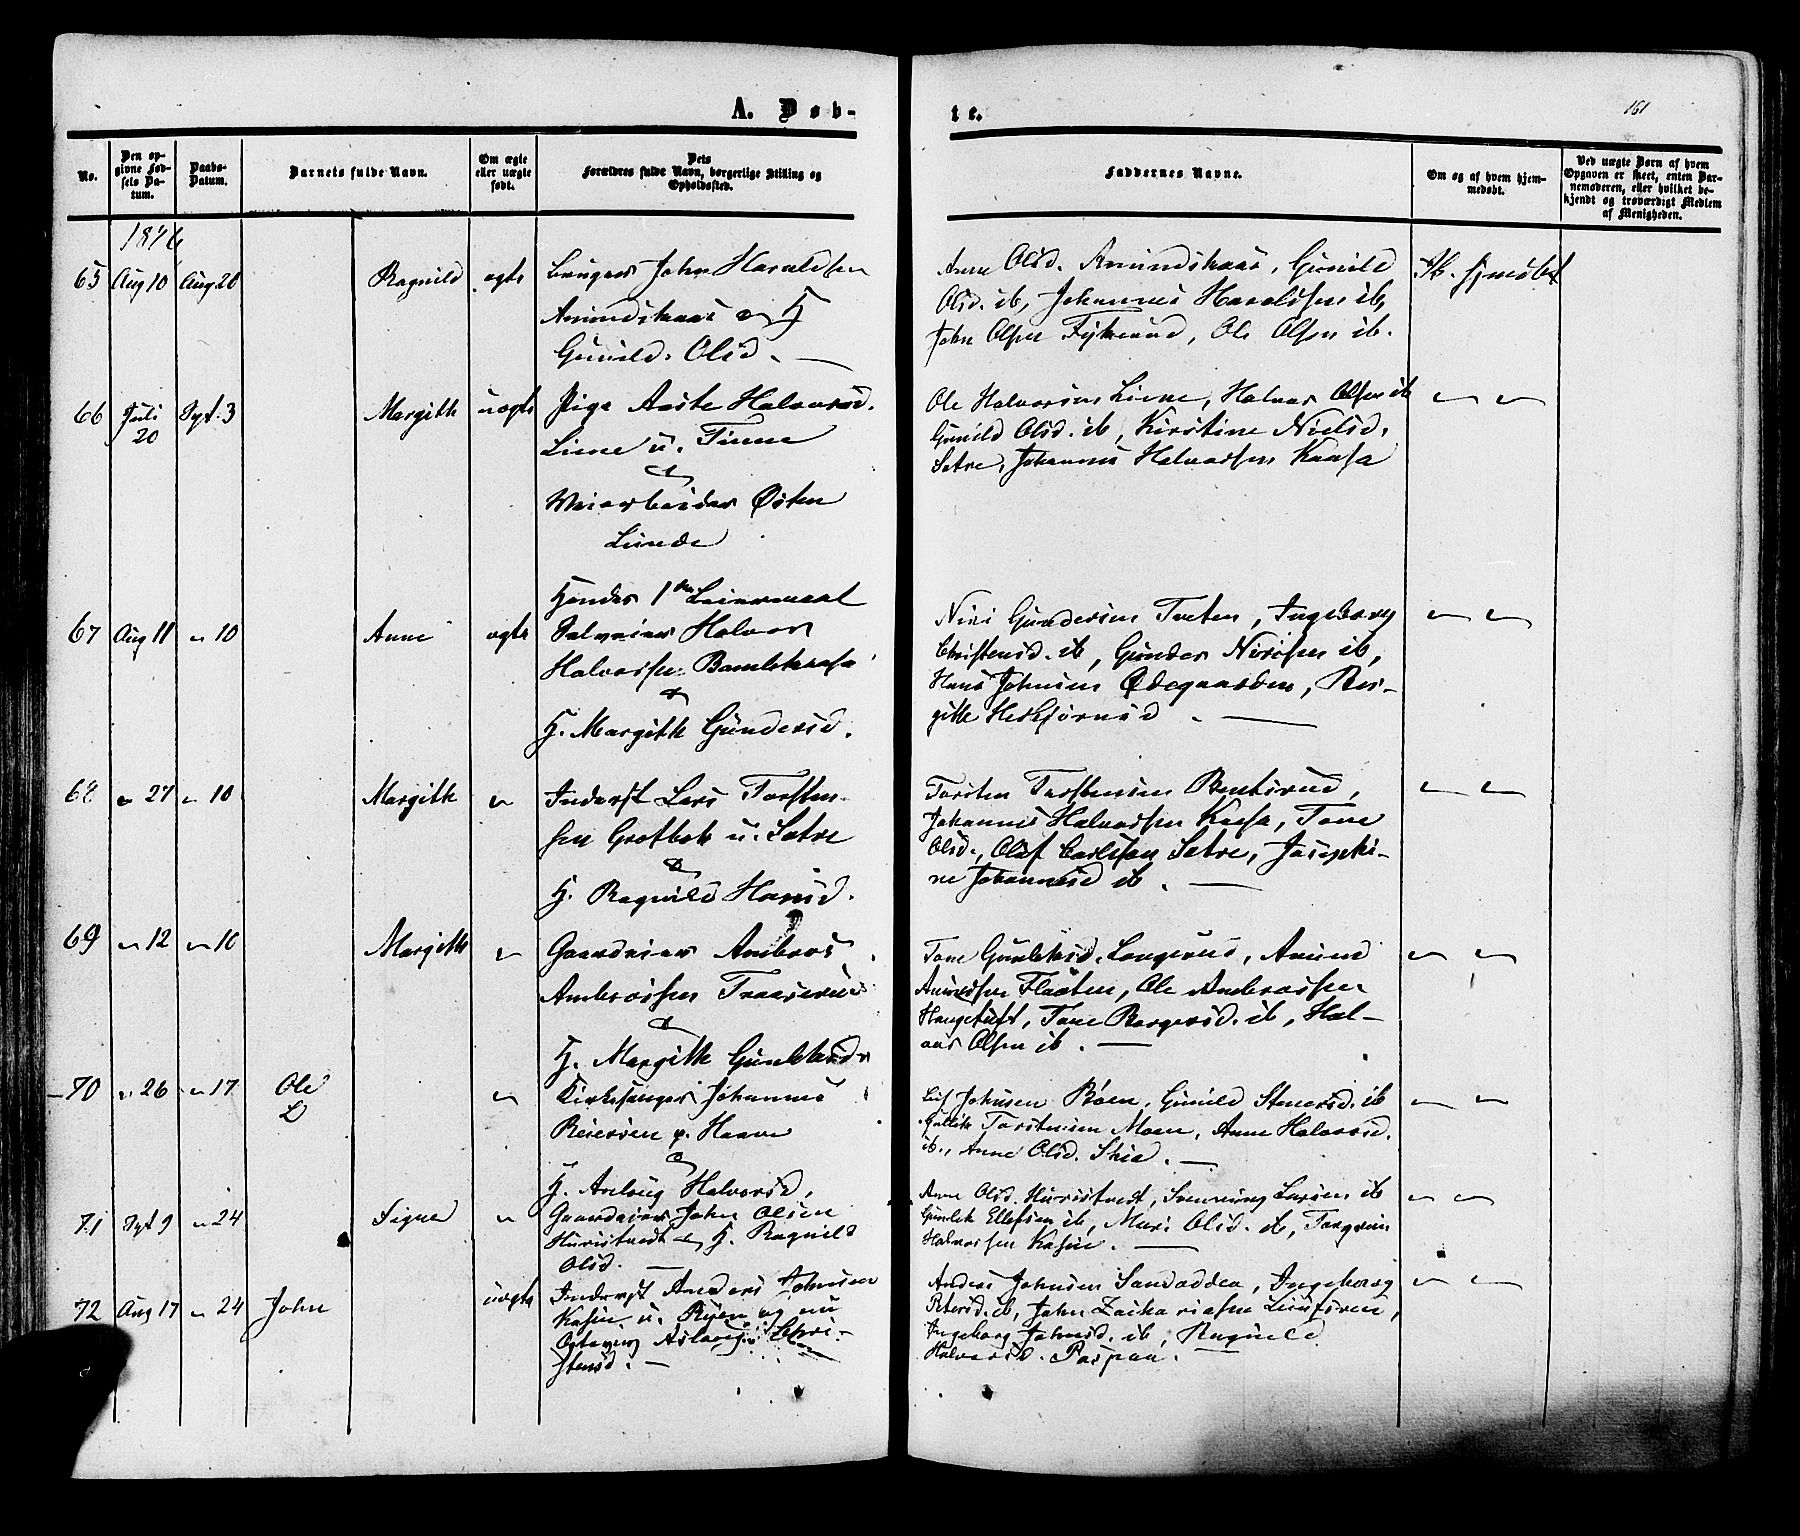 A. Døb-
te.
161
No.
Den opgivne Fødsels Datum.
Daabs-Datum.
Barnets fulde Navn.
Om ægte eller uægte født.
Dets Forældres fulde Navn, borgerlige Stilling og Opholdssted.
Faddernes Navne.
Om og af hvem hjemmedøbt.
Ved uægte Børn af hvem Opgaven er skeet, enten Barnemoderen, eller hvilket bekjendt og troværdigt Medlem af Menigheden.
1876
65 Aug 10 Aug 20 Ragnild ægte
Bruger John Haraldsen
Amundskaas & H
Gunild Olsd.
Anne Olsd. Amundskaas, Gunild
Olsd. ib, Johannes Haraldsen ib,
John Olsen Fykerud, Ole Olsen ib.
66 Juli 20 Sept. 3 Margith uægte
Pige Aaste Halvorsd.
Liene u. Tinne
&
Veiarbeider Østen
Lunde
Hendes 1ste Leiermaal
Ole Halvorsen Liene, Halvor Olsen ib
Gunild Olsd. ib, Kirstine Nielsd.
Sætre, Johannes Halvorsen Kaasa
67 Aug 11 " 10 Anne ægte
Selveier Halvor
Halvorsen Bamlekaasa
&
H. Margith Gundersd.
Niri Gundersen Tveten, Ingeborg
Christensd. ib, Gunder Nirisen ib,
Hans Johnsen Ødegaarden, Bir-
gitte Herbjørnsd.
68 " 27 " 10 Margith "
Inderst Lars Torsten-
sen Grotbæk u. Sætre
&
H. Ragnild Hansd.
Torsten Torstensen Bentsrud,
Johannes Halvorsen Kaasa, Tone
Olsd., Olaf Carlsen Sætre, Josephi-
ne Johannesd ib.
69 " 12 " 10 Margith "
Gaardeier Ambros
Ambrosen Traaserud
&
H. Margith Gunleksd.
Tone Gunleksd. Langerud, Amund
Amundsen Flaaten, Ole Ambrosen
Haugetuft, Tone Borgersd. ib, Hal-
vor Olsen ib.
70 " 26 " 17 Ole "
Kirkesanger Johannes
Reiersen p. Haave
&
H. Anlaug Halvorsd.
Johnsen Bøen, Gunild Steners. ib
Gullik Torstensen Moen, Anne Halvorsd.
ib., Anne Olsd. Skie.
71 Sept 9 " 24 Signe "
Gaardeier John Olsen
Hvristvedt & H. Ragnild
Olsd.
Anne Olsd. Hvristvedt, Svenning Larsen ib
Gunlek Ellefsen ib, Mari Olsd. ib, Torgrim
Halvorsen Kasin.
72 Aug 17 " 24 John uægte
Inderst Anders Johnsen
Kasin u. Ryen og nu
Aslaug Chri-
stensd.
Anders Johnsen Sandodden, Ingeborg
Petersd. ib, John Zachariasen
Ingeborg Johnsd. ib, Ragnild
Halvorsd.